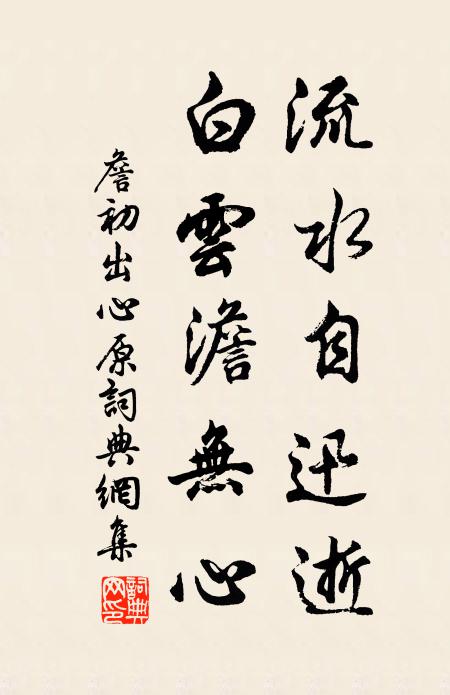 流水自迅逝
白雲澹無心
詹初出心原詞典網集
詞典网印